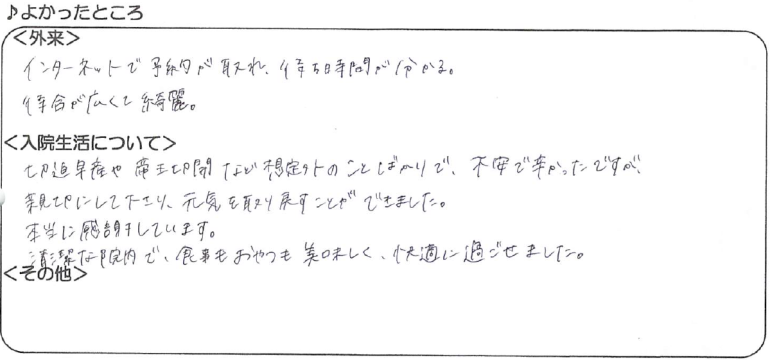 ♪よかったところ
＜外来＞
インターネットで予約が取れ、待ち時間が分かる。
待合が広くて綺麗。
＜入院生活について＞
切迫早産や帝王切開など想定外のことばかりで、不安で辛かったですが、
親切にして下さり、元気を取り戻すことができました。
本当に感謝しています。
清潔な院内で、食事もおやつも美味しく、快適に過ごせました。
＜その他＞